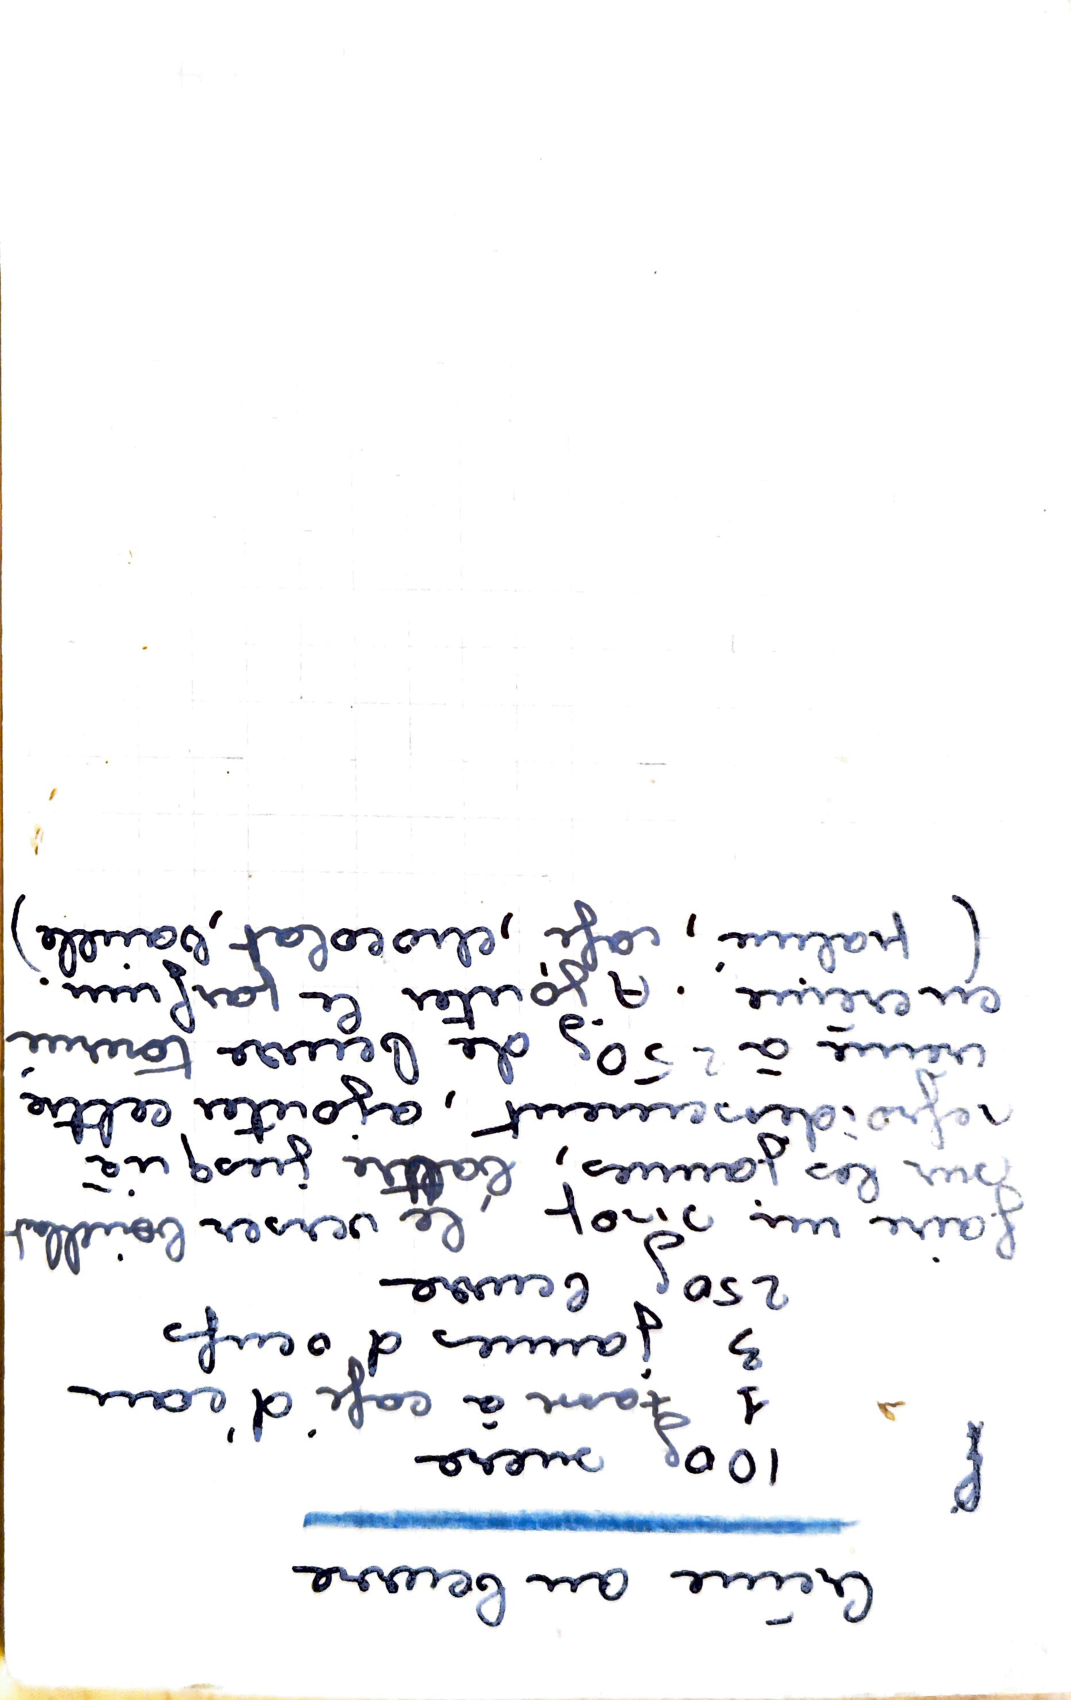 Crème au beurre
100g sucre
1 tasse à café d'eau
3 jaunes d'oeufs
250g beurre
faire un sirop le verser bouillant
sur les jaunes, battre jusqu'à
refroidissement, ajouter cette
crème à 250g de beurre tourné
en crème. Ajouter le parfum.
(praliné, café, chocolat, vanille)